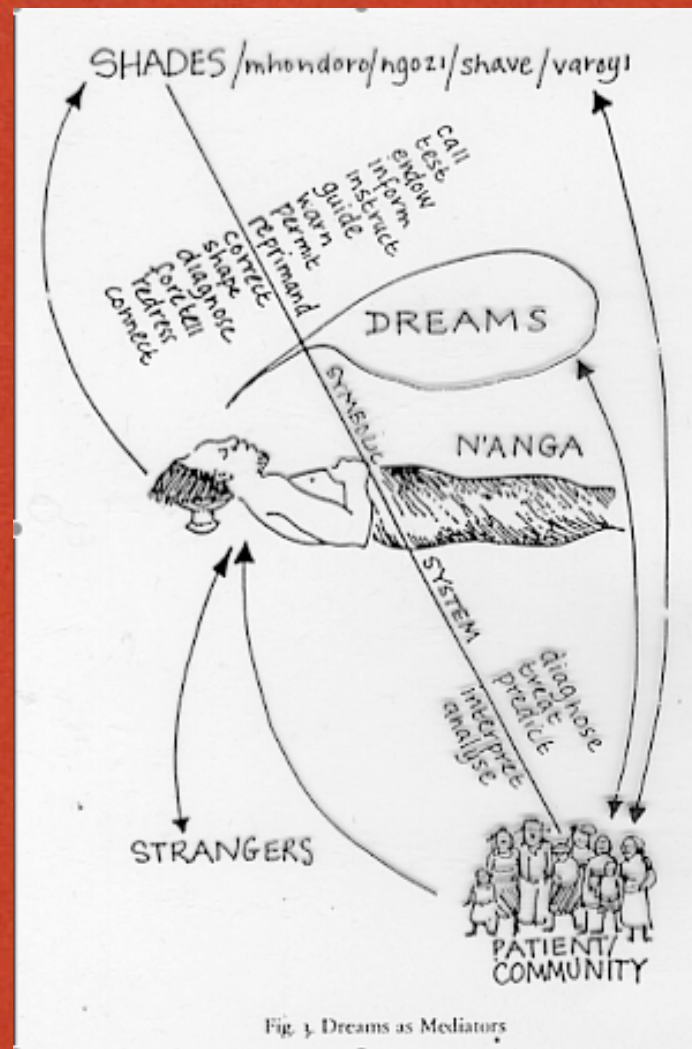 SHADES/mhondoro/ngozi/shave/varoyi
call
test
endow
inform
instruct
guide
warn
permit
reprimand
correct
shape
diagnose
foretell
redress
connect
DREAMS
SYMBOLIC
N'ANGA
SYSTEM
diagnose
treat
predict
interpret
analyse
STRANGERS
PATIENT/
COMMUNITY
Fig. 3. Dreams as Mediators